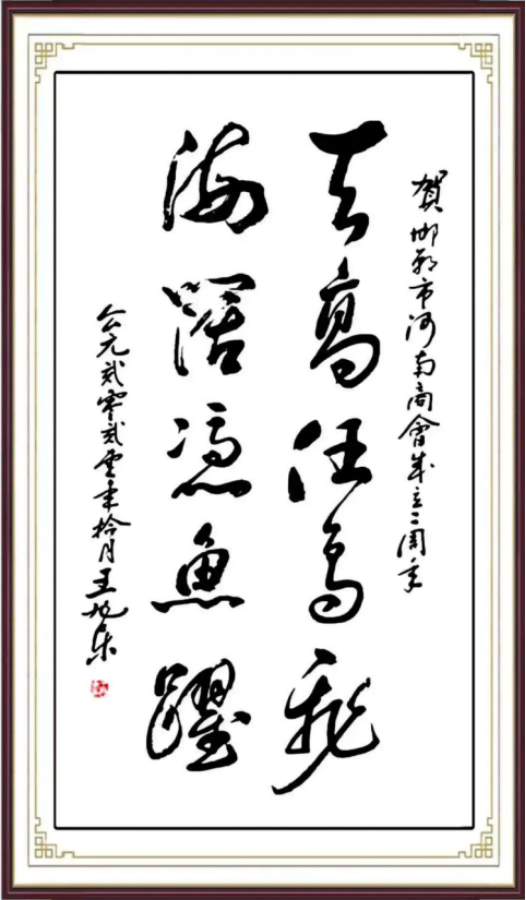 賀邯鄲市河南商會成立二周年
天高任鳥飛
海闊憑魚躍
公元貳零貳零年拾月王旭東